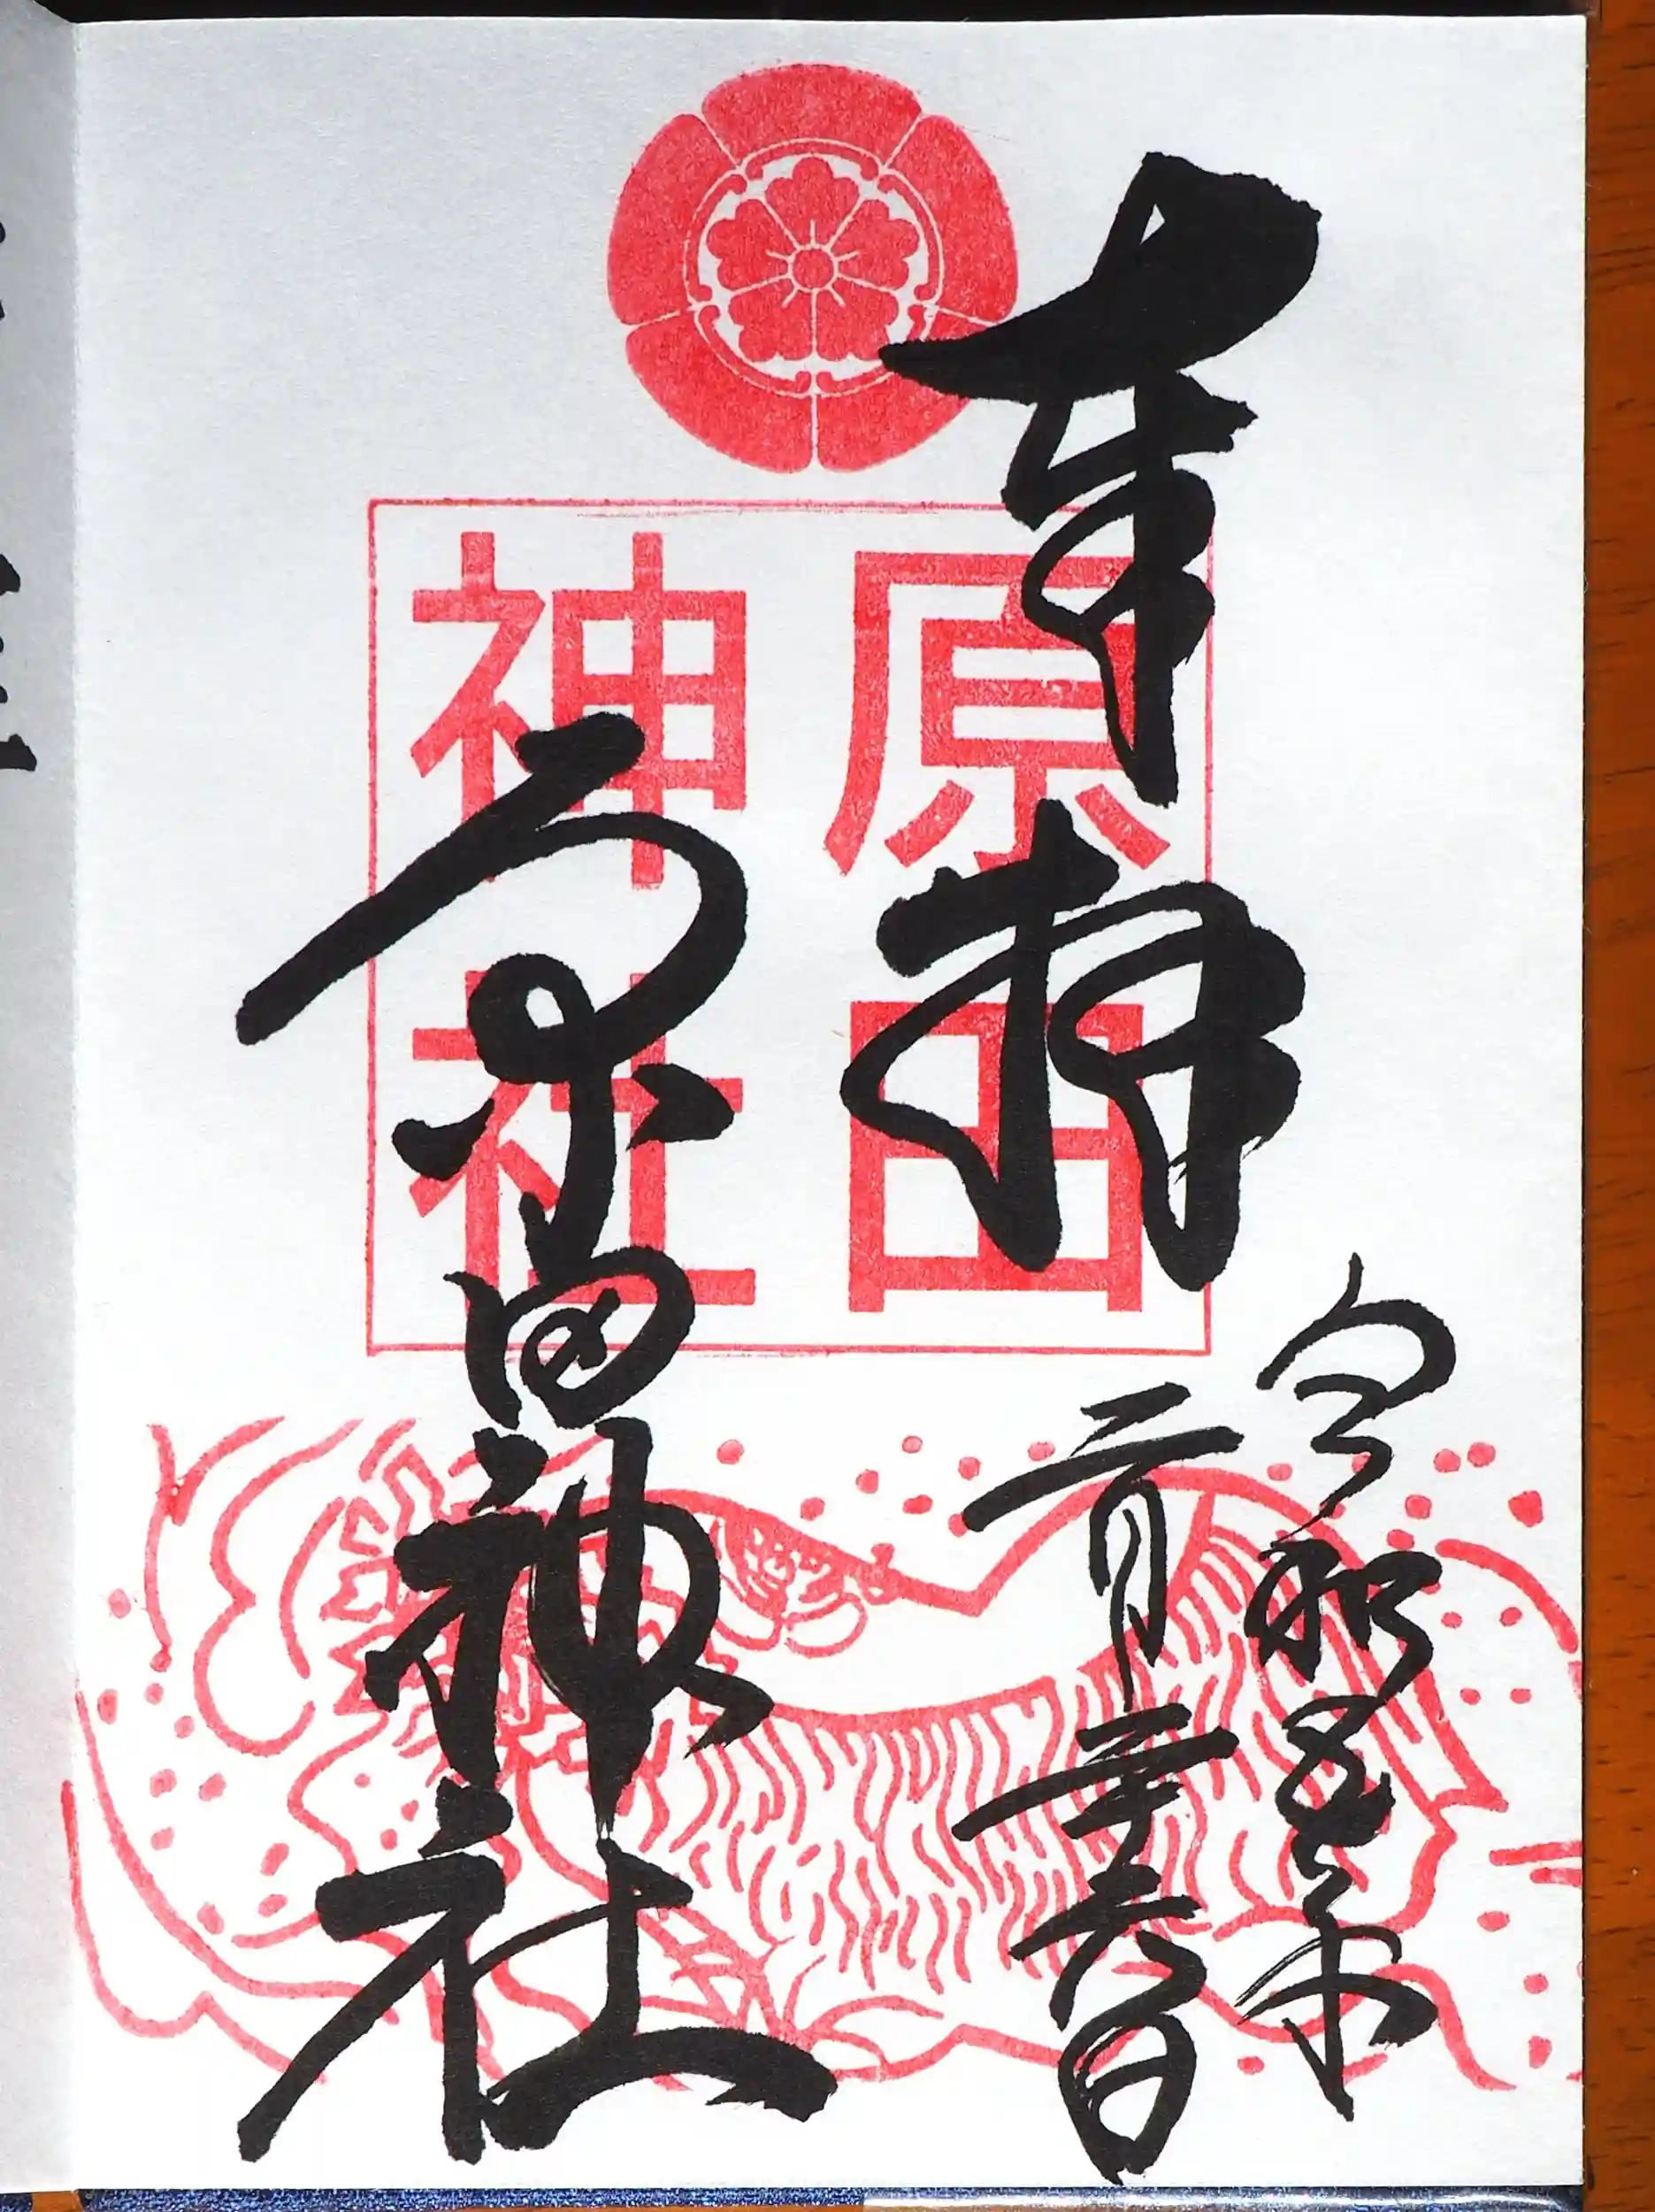 奉拝
令和五年
二月二十六日
原田神社
原田
神社